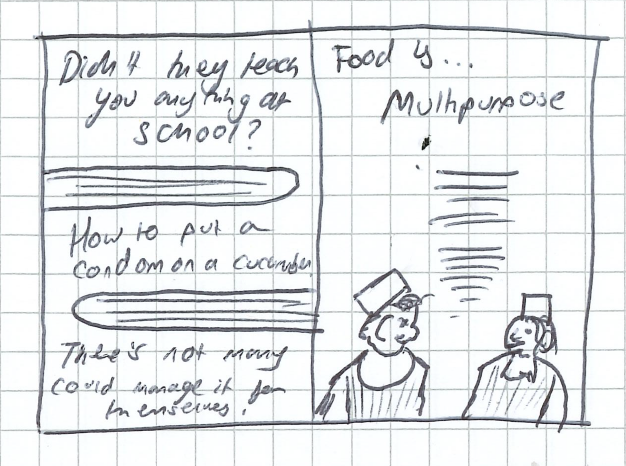 Didn't they teach
you anything at
school?
How to put a
condom on a cucumber
There's not many
could manage it for
themselves!
Food is...
Multipurpose